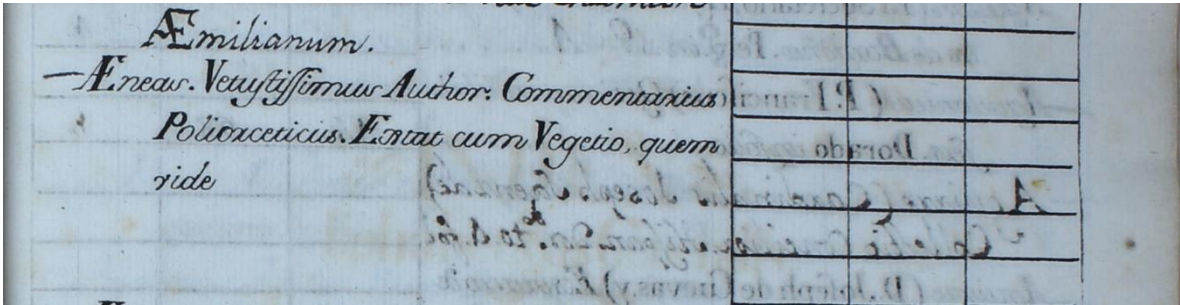 Æmilianum.
— Æneas. Vetustissimus Author. Commentarius
Poliorceticus. Extat cum Vegetio, quem
vide